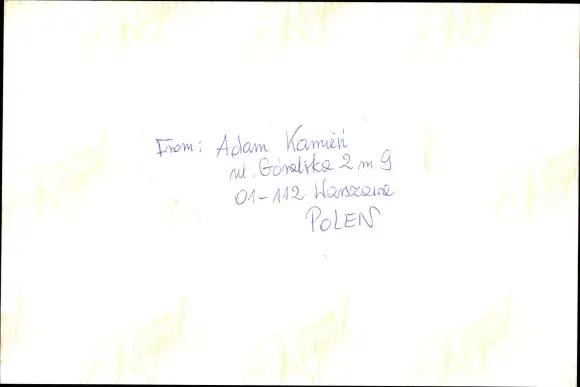 From: Adam Kamień
ul. Góralska 2 m 9
01-112 Warszawa
POLEN